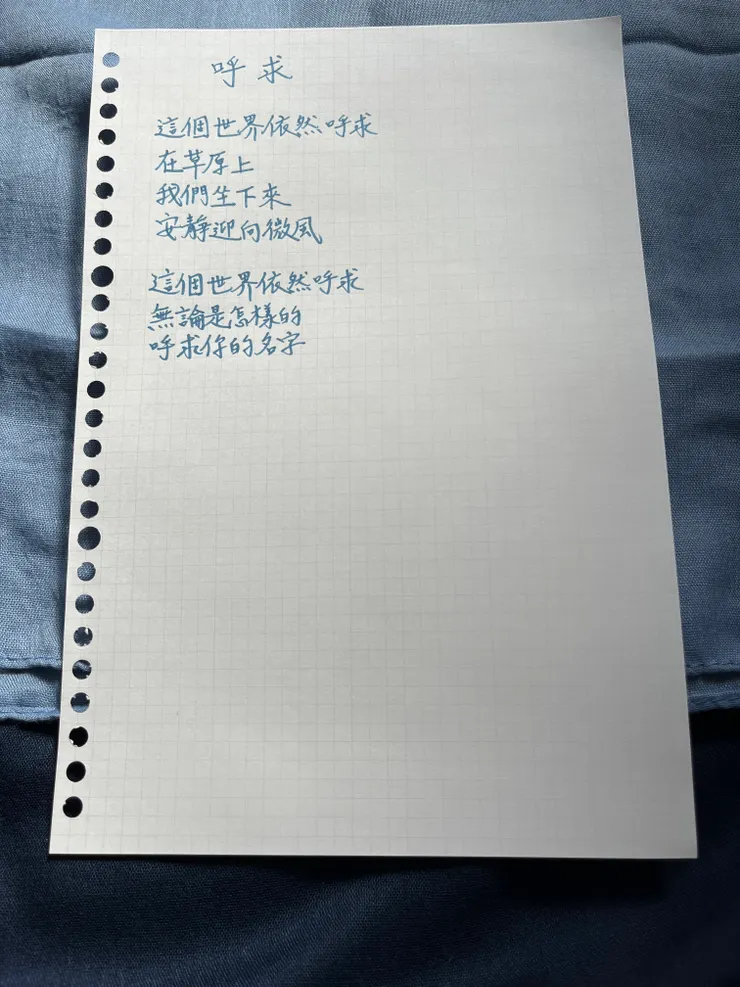 呼求
這個世界依然呼求
在草原上
我們生下來
安靜迎向微風
這個世界依然呼求
無論是怎樣的
呼求你的名字